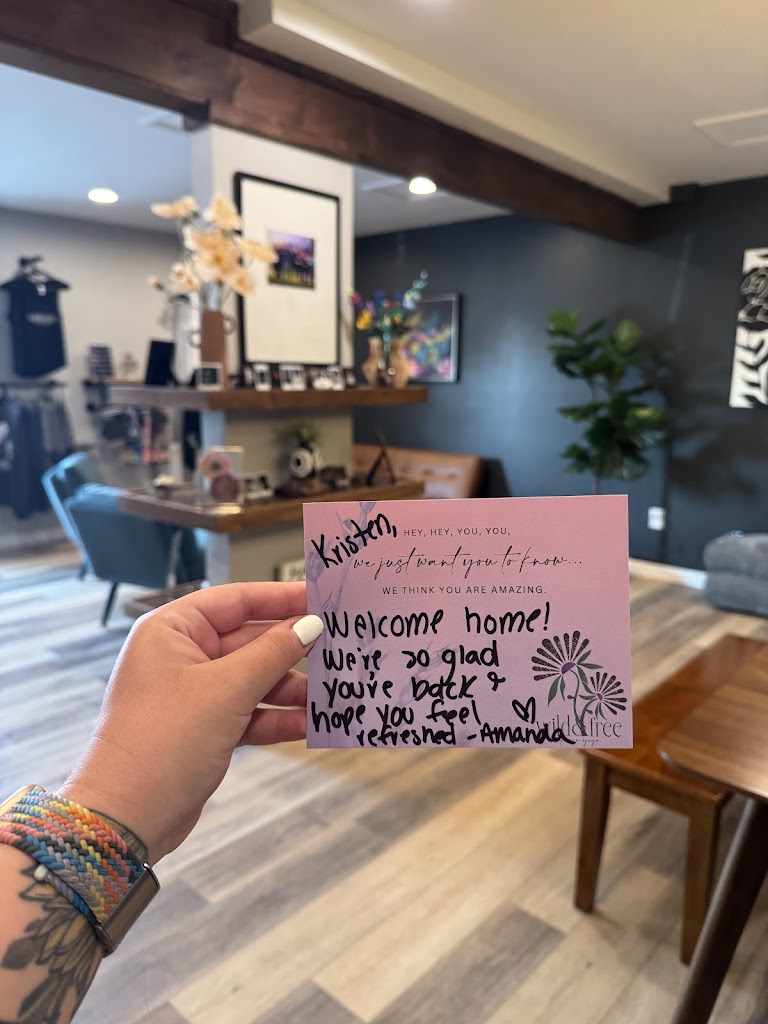 Kristen,
HEY, HEY, YOU, YOU,
we just want you to know...
WE THINK YOU ARE AMAZING.
Welcome home!
We're so glad
you've back &
hope you feel
refreshed - Amanda
wild & free